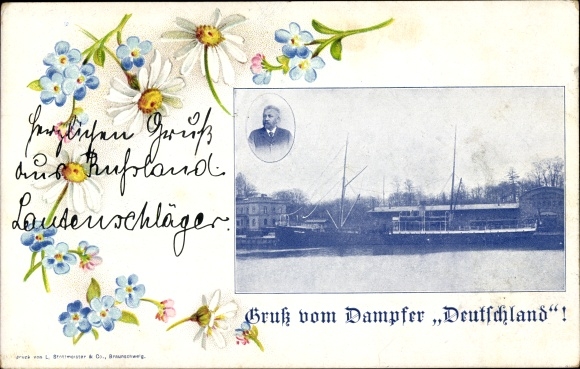 herzlichen Gruß
aus Ruhrland.
Lautenschläger.
Gruß vom Dampfer „Deutschland“!
Druck von L. Strohmeister & Co., Braunschweig.